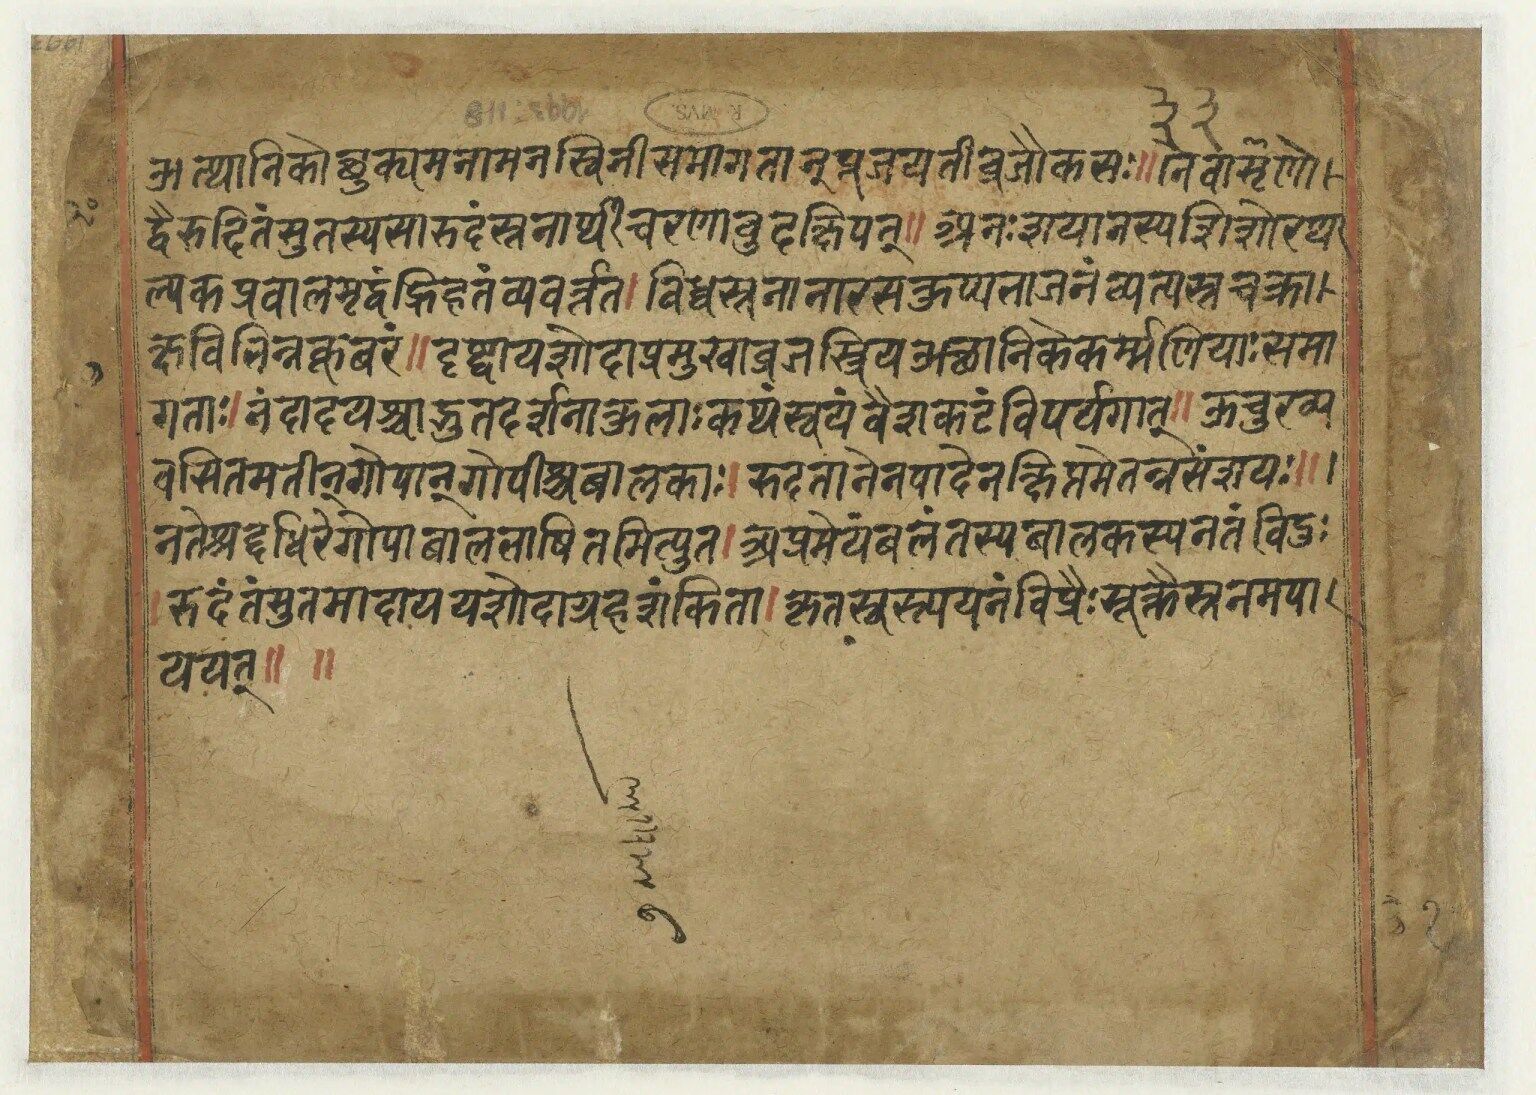 ३३
अत्थानिकौछुक्यमनामनस्विनीसमागतान्पूजयतीव्रजौकसः॥नैवाशृणो।
द्वैरुदितंसुतस्यसारुदंस्तनार्थीचरणावुदक्षिपत्॥अधःशयानस्यशिशोरप्य
ल्पकप्रवालमृद्वंघ्रिहतंव्यवर्त्तत।विध्वस्तनानारसकुप्यभाजनंव्यत्यस्तचक्रा।
क्षविभिन्नकूबरं॥दृष्ट्वायशोदाप्रमुखाव्रजस्त्रियऔत्थानिकेकर्म्मणियाःसमा
गताः।नंदादयश्चाद्भुतदर्शनाकुलाःकथंस्वयंवैशकटंविपर्यगात्॥ऊचुरव्य
वसितमतीन्गोपान्गोपीश्चबालकाः।रुदतानेनपादेनक्षिप्तमेतन्नसंशयः॥।
नतेश्रद्दधिरेगोपाबालभाषितमित्युत।अप्रमेयंबलंतस्यबालकस्यनतंविदुः
।रुदंतंसुतमादाययशोदाग्रहशंकिता।कृतस्वस्त्ययनंविप्रैःसूक्तैस्तनमपा।
ययत्॥ ॥